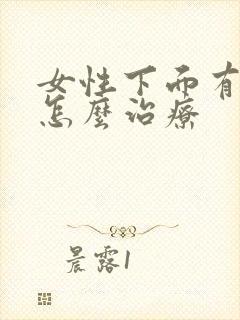 女性下面有
怎麼治療
晨露1